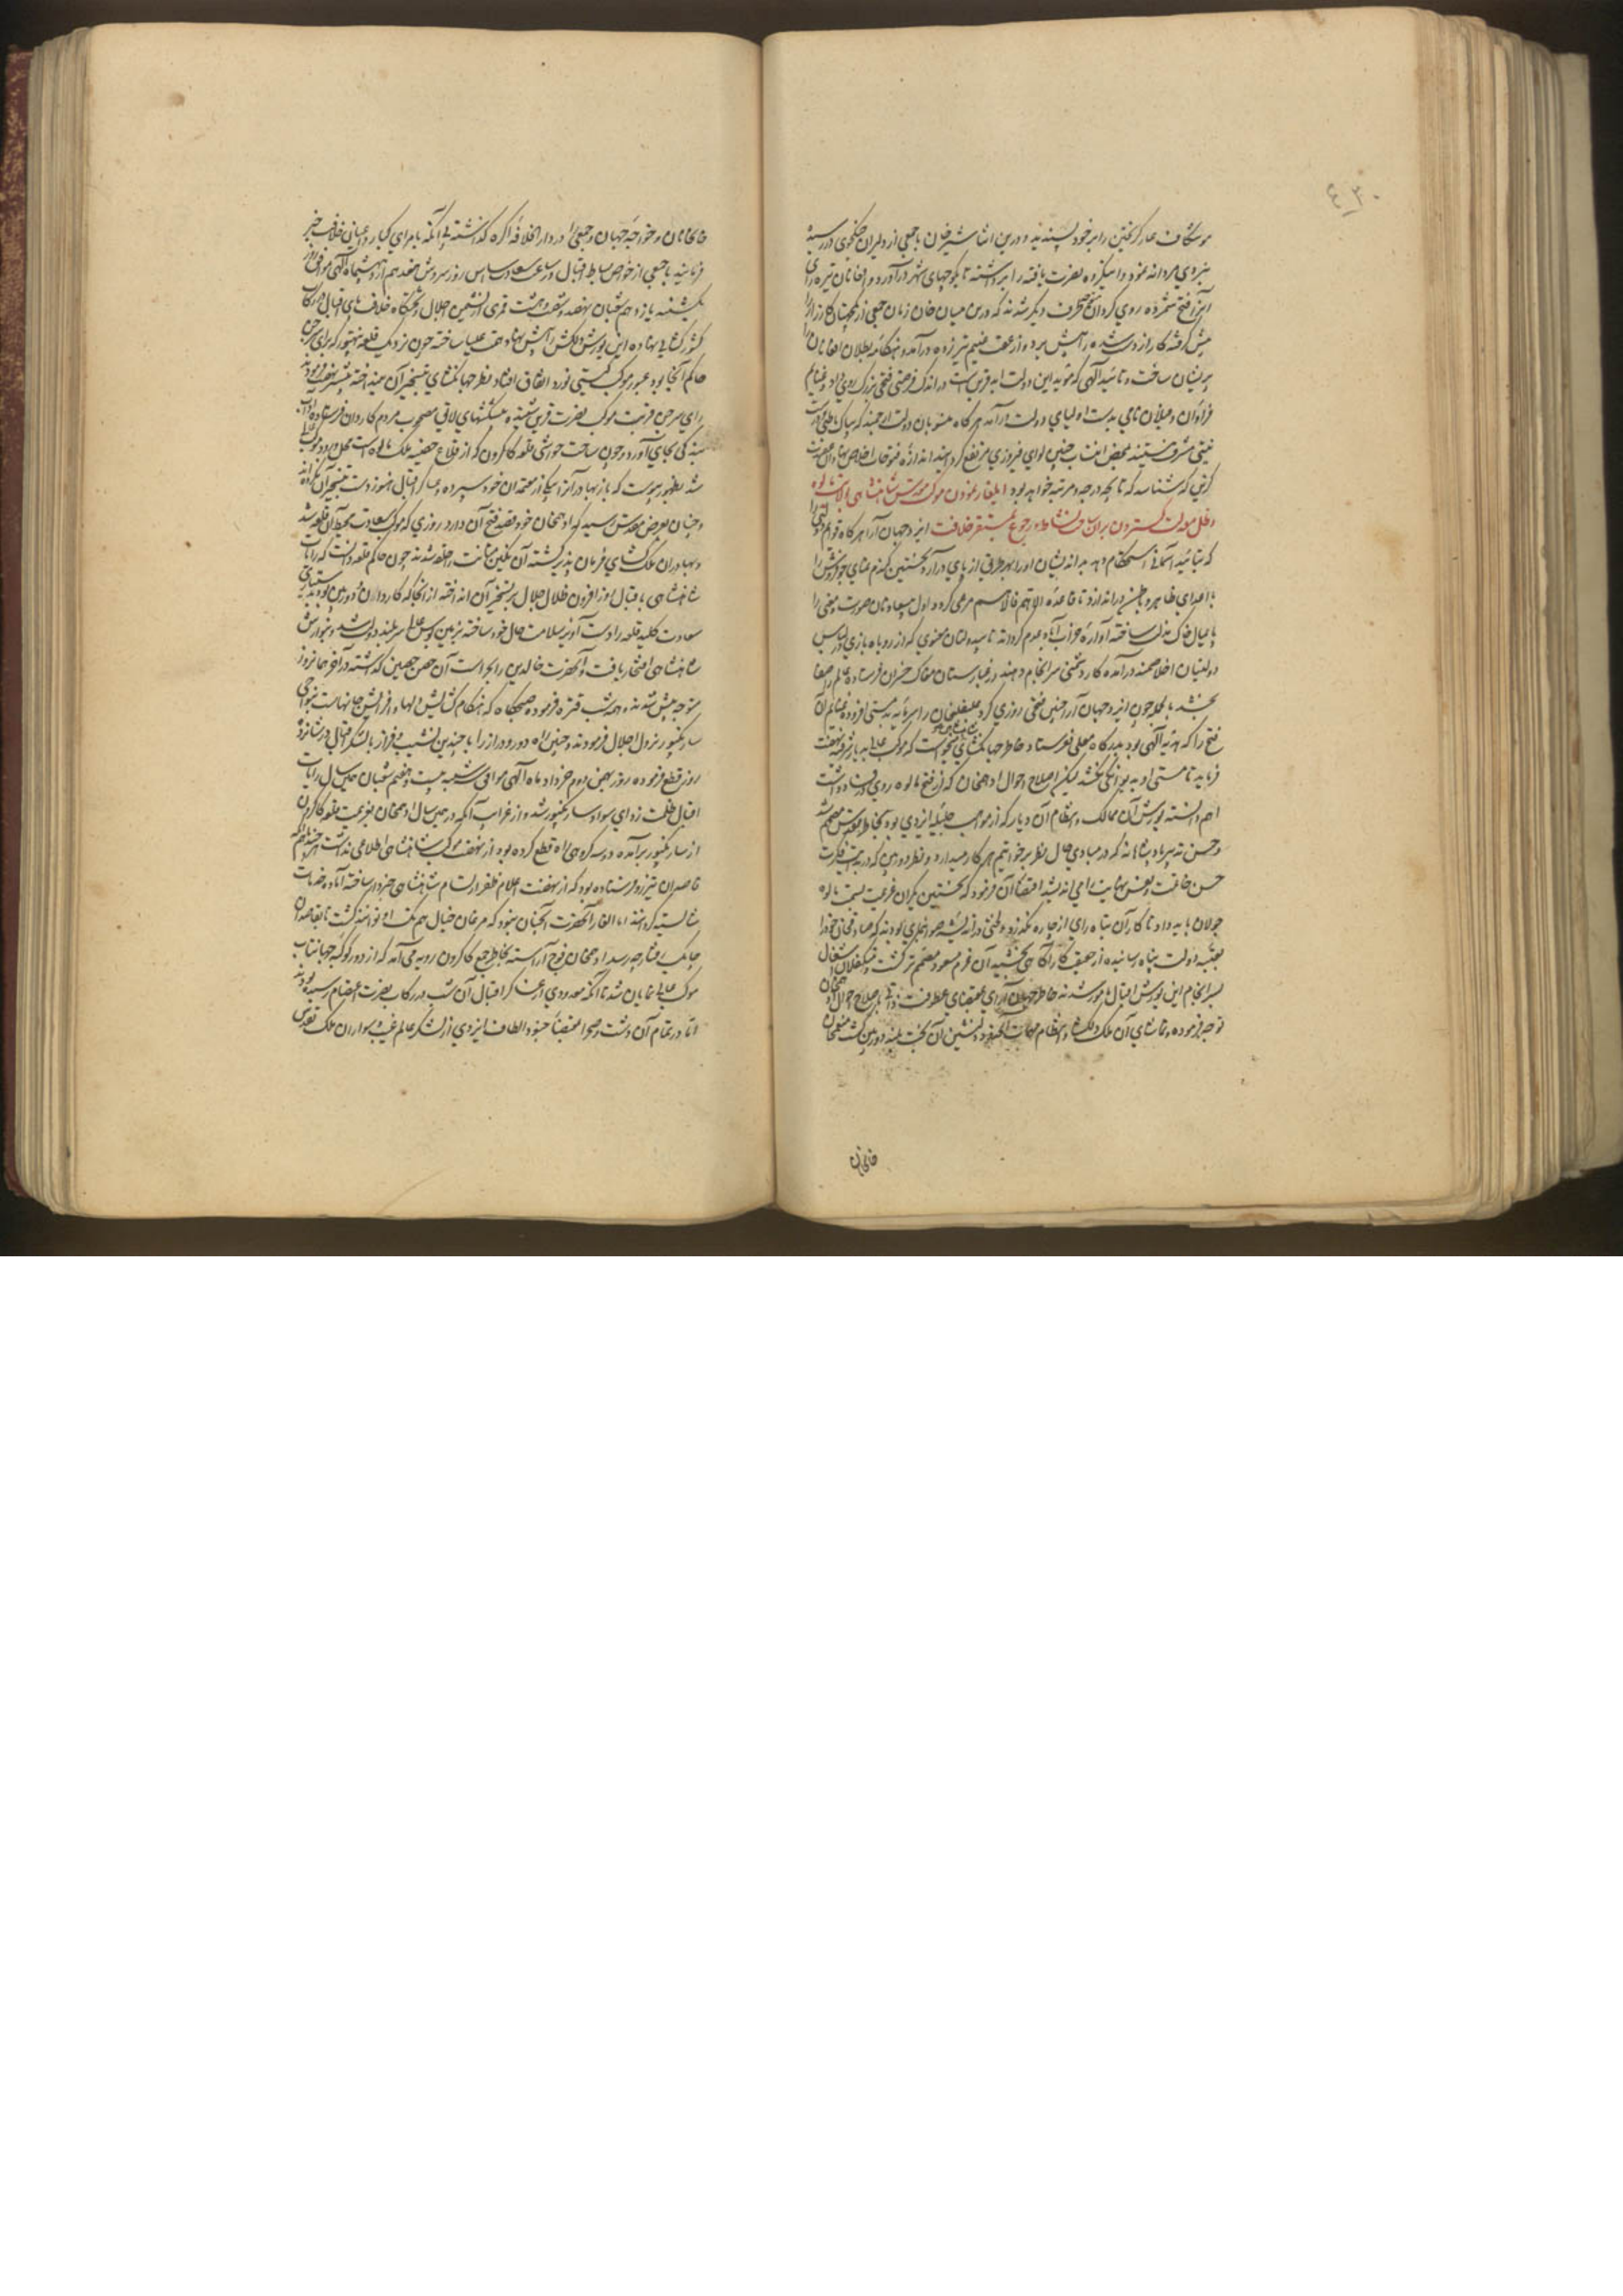 ۴۳۰
موشکاف عار گرفتن را بر خود پسندیدند و درین اثنا شیر خان با جمعی از دلیران جنگجوی در رسید
نیروی مردانه نمود و امیکزه نصرت یافته را برداشته تا بکوچهای شهر درآورد و افغانان تیره رای
این را فتح شمرده روی گردان طرف دیگر شدند که درین میان خان زمان جمعی از کارزار
پیش گرفته کار از دست شده در آتش برده از عقب غنیم تیر زده درآمد و هنگامه بطلان افغانان را
پریشان ساخت و تائید الهی که مؤید این دولت ابد قرین است در اندک فرصتی فتحی بزرگ روی داد و غنایم
فراوان و فیلان نامی بدست اولیای دولت درآمد هرگاه منسوبان دولت ارجمند که بپاک
نیتی مشرف نیستند بمحض انتساب چنین لوای فیروزی مرتفع گردانیدند اندازه فتوحات اخلاص
گزین که شناسد که تا بچه درجه و مرتبه خواهد بود ایلغار نمودن موکب مقدس شاهنشاهی بولایت مالوه
و ظل معدلت گستردن بران ساحت نشاط و رجوع بمستقر خلافت ایزد جهان آرا هرگاه قوایم
که بتائید آسمانی استحکام دهد بداندیشان او را بهر طریق از پای درآرد نخستین گندم نمای جو فروش را
با اعدای ظاهر و باطن دراندازد تا قاعده الاهم فالاهم مرعی گردد اول سپاه صورت و معنی را
پایمال خاک مذلت ساخته آواره خراب آباد عدم گرداند تا سیه دلان معنوی که از روباه بازی در لباس
دولتیان اخلاصمند درآمده کار دشمنی سرانجام دهند در غبارستان مغاک خسران فرستاده عالم را صفا
بخشد بالجمله چون ایزد جهان آرا چنین فتحی روزی کرد علیقلیخان را سرمایه بدمستی افزوده غنایم آن
فتح را که هدیه الهی بود بدرگاه معلی نفرستاد خاطر جهانگشای میخواست که موکب عالی بدیار شرقیه نهضت
فرماید تا مستی او بدیوانگی نکشد لیکن اصلاح احوال ادهمخان که از فتح مالوه روی در فساد داشت
اهم دانسته یورش آن ممالک و انتظام آن دیار که از مواهب جلیله ایزدی بود بخاطر مقدس مصمم شد
و حسن تدبیر پادشاهانه که در مبادی حال نظر بر خواتیم هر کار میدارد و نظر دوربین که در بدایت فکرت
حسن خاتمت و یمن نهایت را می اندیشد اقتضای آن فرمود که نخستین یکران عزیمت بسمت مالوه
جولان باید داد تا کار آن تباه رای از چاره نگذرد
بعتبه دولت پناه رسانیده از حقیقت کار آگاهی بخشید آن عزم مسعود مصمم تر گشت و متکفلان اشغال
بسرانجام این یورش اقبال مامور شدند خاطر جهان آرای بمقتضای عطوفت ذاتی باصلاح احوال ادهمخان
توجه فرموده و تماشای آن ملک دلگشا و انتظام مهمات دلنشین آن بخت بلند دوربین گشت منعمخان
خانخانان
خانخانان و خواجه جهان و جمعی را در دار الخلافه آگره گذاشته بی آنکه بامرای کبار و اعیان خلافت خبر
فرمایند با جمعی از خواص بساط اقبال در ساعت سعادت اساس روز سروش هفدهم اردیبهشت ماه الهی موافق روز
یکشنبه یازدهم شعبان نهصد و شصت و هشت قمری از نشیمن اجلال و تختگاه خلافت پای اقبال در رکاب
کشورگشای نهاده این یورش دلکش را پیش نهاد همت علیا ساخته چون نزدیک قلعه رنتهپور که رای سرجن
حاکم آنجا بود عبور موکب گیتی نورد اتفاق افتاد نظر جهانگشای بتسخیر آن نینداخته پیشتر نهضت فرمودند
رای سرجن قربت موکب نصرت قرین شنیده پیشکشهای لایق مصحوب مردم کاردان فرستاده آداب
بندگی بجای آورد و چون ساحت حواشی قلعه گاکرون که از قلاع حصینه ملک مالوه است محل ورود موکب عالی
شد بظهور پیوست که باز بهادر آنرا بیکی از معتمدان خود سپرده و عساکر اقبال هنوز دست بتسخیر آن نکرده اند
و چنان بعرض مقدس رسید که ادهمخان خود قصد فتح آن دارد روزی که موکب سعادت محیط آن قلعه شد
و بهادران ملک گشای فرمان پذیر گشته آن نگین متانت را حلقه شدند چون حاکم قلعه دانست که رایات
شاهنشاهی باقبال روز افزون ظلال جلال بر تسخیر آن انداخته از آنجا که کاردان و دوربین بود بدستیاری
سعادت کلید قلعه را دست آویز سلامت حال خود ساخته بزمین بوس عالی سربلند دولت شد و بنوازش
شاهنشاهی افتخار یافت و آنحضرت خالدین را بحراست آن حصن حصین گذاشته در آخر همان روز
متوجه پیش شدند و همه شب قطره فرموده صبحگاه که هنگام گشایش دلها و افزایش جانهاست بنواحی
سارنگپور نزول اجلال فرمودند و چنین راه دور و دراز را با چندین نشیب و فراز با لشکر اقبال در شانزده
روز قطع فرموده روز بهمن دوم خرداد ماه الهی موافق شنبه بیست و هفتم شعبان همین سال رایات
اقبال ظلمت زدای سواد سارنگپور شد و از غرایب آنکه درین سال ادهمخان بعزیمت قلعه گاکرون
از سارنگپور برآمده دو سه کروهی راه قطع کرده بود از نهضت موکب شاهنشاهی اطلاعی نداشت هرچند ماهم انکه
قاصدان تیزرو فرستاده بود که از نهضت اعلام ظفر ارتسام شاهنشاهی خبردار ساخته آماده خدمات
شایسته گرداند اما ایلغار آنحضرت آنچنان نبود که مرغان خیال هم بتگ او توانند گشت تا بقاصدان
چابک رفتار چه رسد ادهمخان فوج آراسته بخاطر جمع گاکرون رویه می آمد که از دور کوکبه جهانتاب
موکب عالی نمایان شد تا آنکه معدودی از عساکر اقبال آن شب در رکاب نصرت اعتصام رسیده بودند
اما در تمام آن دشت و صحرا جنود الطاف ایزدی از لشکر عالم غیب و سواران ملک تقدس